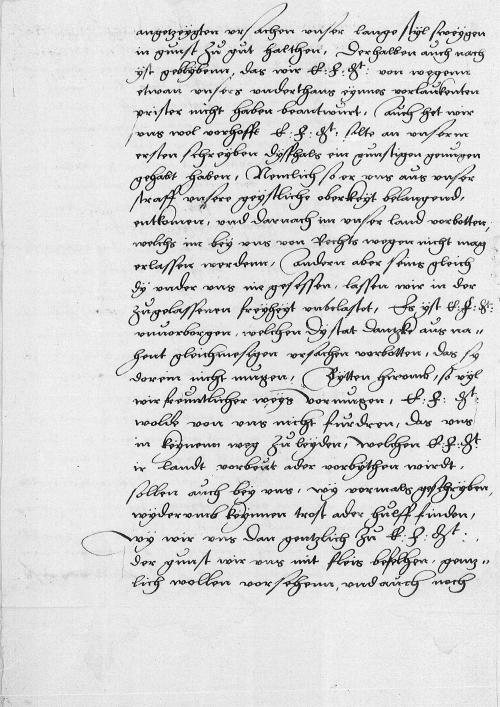 angetzeygten ursachen unser lange styl sweygen
in gunst zu gut halthen, Derhalben auch nach
yst geblybenn, das wir E: F: Gt: von wegenn
etwan unsers underthans eynnes vorlaukenten
prister nicht haben beantwurt, Auch het wir
uns wol vorhofft E: F: Gt: solte an unserm
ersten schreyben dysfhals ein gunstigen genugen
gehabt haben, Nemlich so er uns aus unser
straff unsere geystliche oberkeyt belangend,
entkomen, und darnach im unser land vorbotten,
welchs im bey uns von Rechts wegen nicht mag
erlassen werdenn, Andern aber seins gleich
dy under uns nie gesessen, lassen wir in der
zugelassenen freyheyt unbelastet, Es yst E: F: Gt:
unvorborgen, welchen dy stat dantzke aus na=
hent gleichmesigen ursachen vorbotten, das sy
dorein nicht mugen, Bytten hirumb, so vyl
wir freuntlicher weys vormugen, E: F: Gt:
wolde von uns nicht furdren, das uns
in keynem weg zu leyden, welchen E: F: Gt:
ir landt vorbeut ader vorbythen wirdt,
sollen auch bey uns, wy vormals geschryben,
wyderumb keynnen trost ader hulff finden,
wy wir uns dan gentzlich zu E: F: Gt:,
der gunst wir uns mit fleis befelhen, gentz=
lich wollen vorsehenn, und auch noch